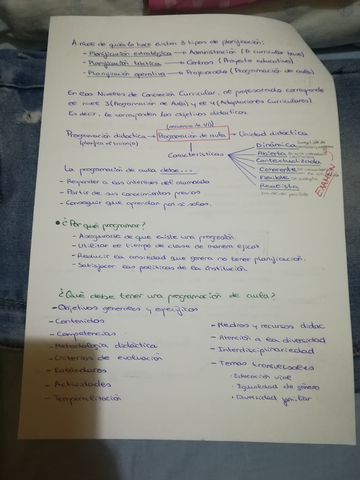 A nivel de quién lo hace existen 3 tipos de planificación:
- Planificación estratégica → Administración (D. curricular base)
- Planificación táctica → Centros (Proyecto educativo)
- Planificación operativa → Profesorado (Programación de aula)
En los Niveles de Concreción Curricular, al profesorado corresponde
el nivel 3 (Programación de Aula) y el 4 (Adaptaciones Curriculares)
Es decir, le corresponden los objetivos didácticos.
Programación didáctica → Programación de aula → Unidad didáctica
Características
Dinámica
Abierta
Contextualizada
Coherente
Flexible
Realista
EXAMEN
La programación de aula debe...
- Responder a los intereses del alumnado
- Partir de sus conocimientos previos
- Conseguir que aprendan por sí solos.
• ¿Por qué programar?
- Asegurarse de que existe una progresión
- Utilizar el tiempo de clase de manera eficaz
- Reducir la ansiedad que genera no tener planificación.
- Satisfacer las políticas de la institución.
¿Qué debe tener una programación de aula?
- Objetivos generales y específicos
- Contenidos
- Competencias
- Metodología didáctica
- Criterios de evaluación
- Estándares
- Actividades
- Temporalización
- Medios y recursos didác.
- Atención a la diversidad
- Interdisciplinariedad
- Temas transversales
· Educación vial
· Igualdad de género
· Diversidad familiar